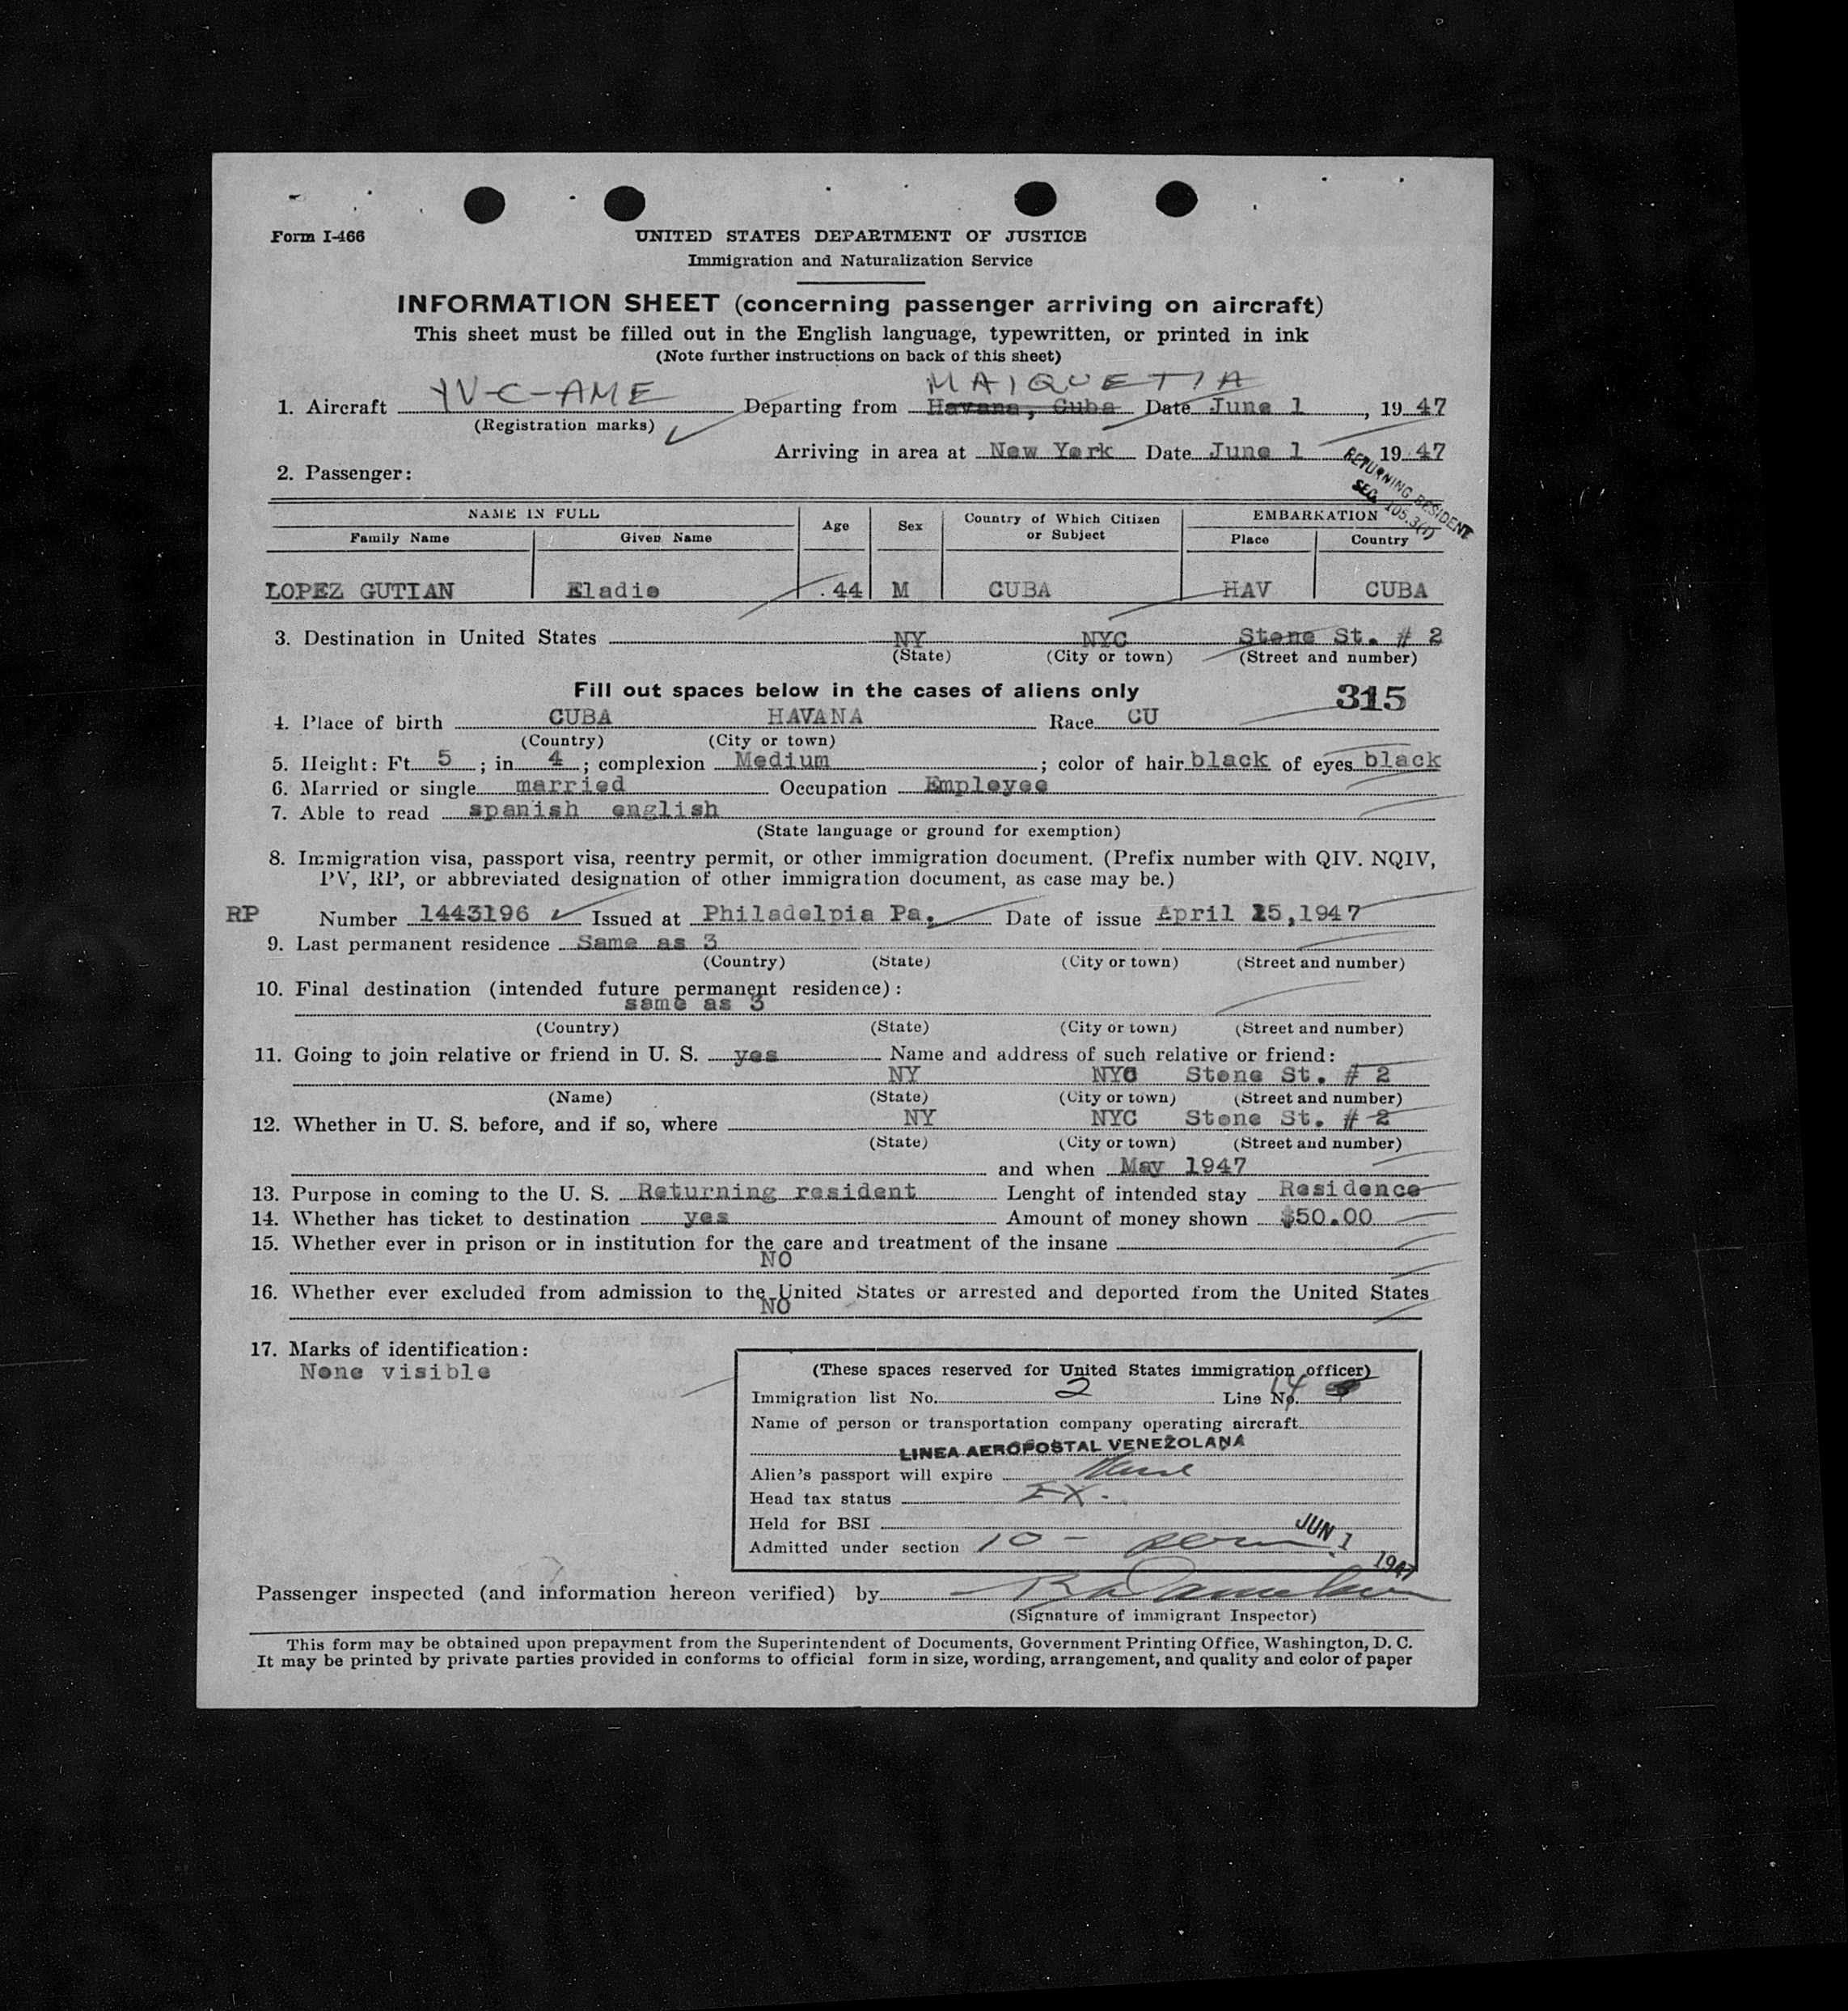 Form I-466
UNITED STATES DEPARTMENT OF JUSTICE
Immigration and Naturalization Service
INFORMATION SHEET (concerning passenger arriving on aircraft)
This sheet must be filled out in the English language, typewritten, or printed in ink
(Note further instructions on back of this sheet)
MAIQUETIA
1. Aircraft YV-C-AME Departing from Havana, Cuba Date June 1, 1947
(Registration marks)
Arriving in area at New York Date June 1 1947
2. Passenger:
RETURNING RESIDENT
SEC. 105.3(f)
NAME IN FULL Age Sex Country of Which Citizen or Subject EMBARKATION
Family Name Given Name Place Country
LOPEZ GUTIAN Eladio 44 M CUBA HAV CUBA
3. Destination in United States NY NYC Stone St. # 2
(State) (City or town) (Street and number)
Fill out spaces below in the cases of aliens only 315
4. Place of birth CUBA HAVANA Race CU
(Country) (City or town)
5. Height: Ft. 5 ; in. 4 ; complexion Medium ; color of hair black of eyes black
6. Married or single married Occupation Employee
7. Able to read spanish english
(State language or ground for exemption)
8. Immigration visa, passport visa, reentry permit, or other immigration document. (Prefix number with QIV. NQIV,
PV, RP, or abbreviated designation of other immigration document, as case may be.)
RP Number 1443196 Issued at Philadelpia Pa. Date of issue April 15,1947
9. Last permanent residence Same as 3
(Country) (State) (City or town) (Street and number)
10. Final destination (intended future permanent residence):
same as 3
(Country) (State) (City or town) (Street and number)
11. Going to join relative or friend in U. S. yes Name and address of such relative or friend:
NY NYC Stone St. # 2
(Name) (State) (City or town) (Street and number)
12. Whether in U. S. before, and if so, where NY NYC Stone St. # 2
(State) (City or town) (Street and number)
and when May 1947
13. Purpose in coming to the U. S. Returning resident Lenght of intended stay Residence
14. Whether has ticket to destination yes Amount of money shown $50.00
15. Whether ever in prison or in institution for the care and treatment of the insane
NO
16. Whether ever excluded from admission to the United States or arrested and deported from the United States
NO
17. Marks of identification:
None visible
(These spaces reserved for United States immigration officer)
Immigration list No. 2 Line No. 14
Name of person or transportation company operating aircraft
LINEA AEROPOSTAL VENEZOLANA
Alien's passport will expire
Head tax status EX.
Held for BSI
Admitted under section 10 - perm JUN 1 1947
Passenger inspected (and information hereon verified) by
(Signature of immigrant Inspector)
This form may be obtained upon prepayment from the Superintendent of Documents, Government Printing Office, Washington, D. C.
It may be printed by private parties provided in conforms to official form in size, wording, arrangement, and quality and color of paper